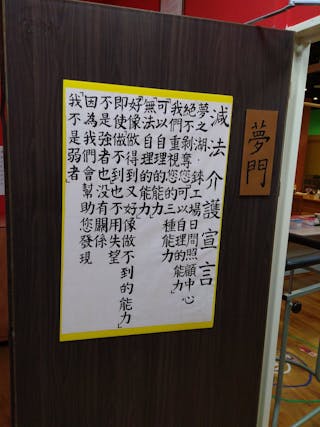 減法介護宣言
夢之湖．銖工場日間照顧中心
絕不剝奪您可以自理的能力
我們重視您的三種能力
「可以自理的能力」
「無法自理的能力」
「好像做得到又好像做不到的能力」
即使做不到也不用失望
不是強者也沒有關係
因為我們會幫助您發現
「我不是弱者」
夢門